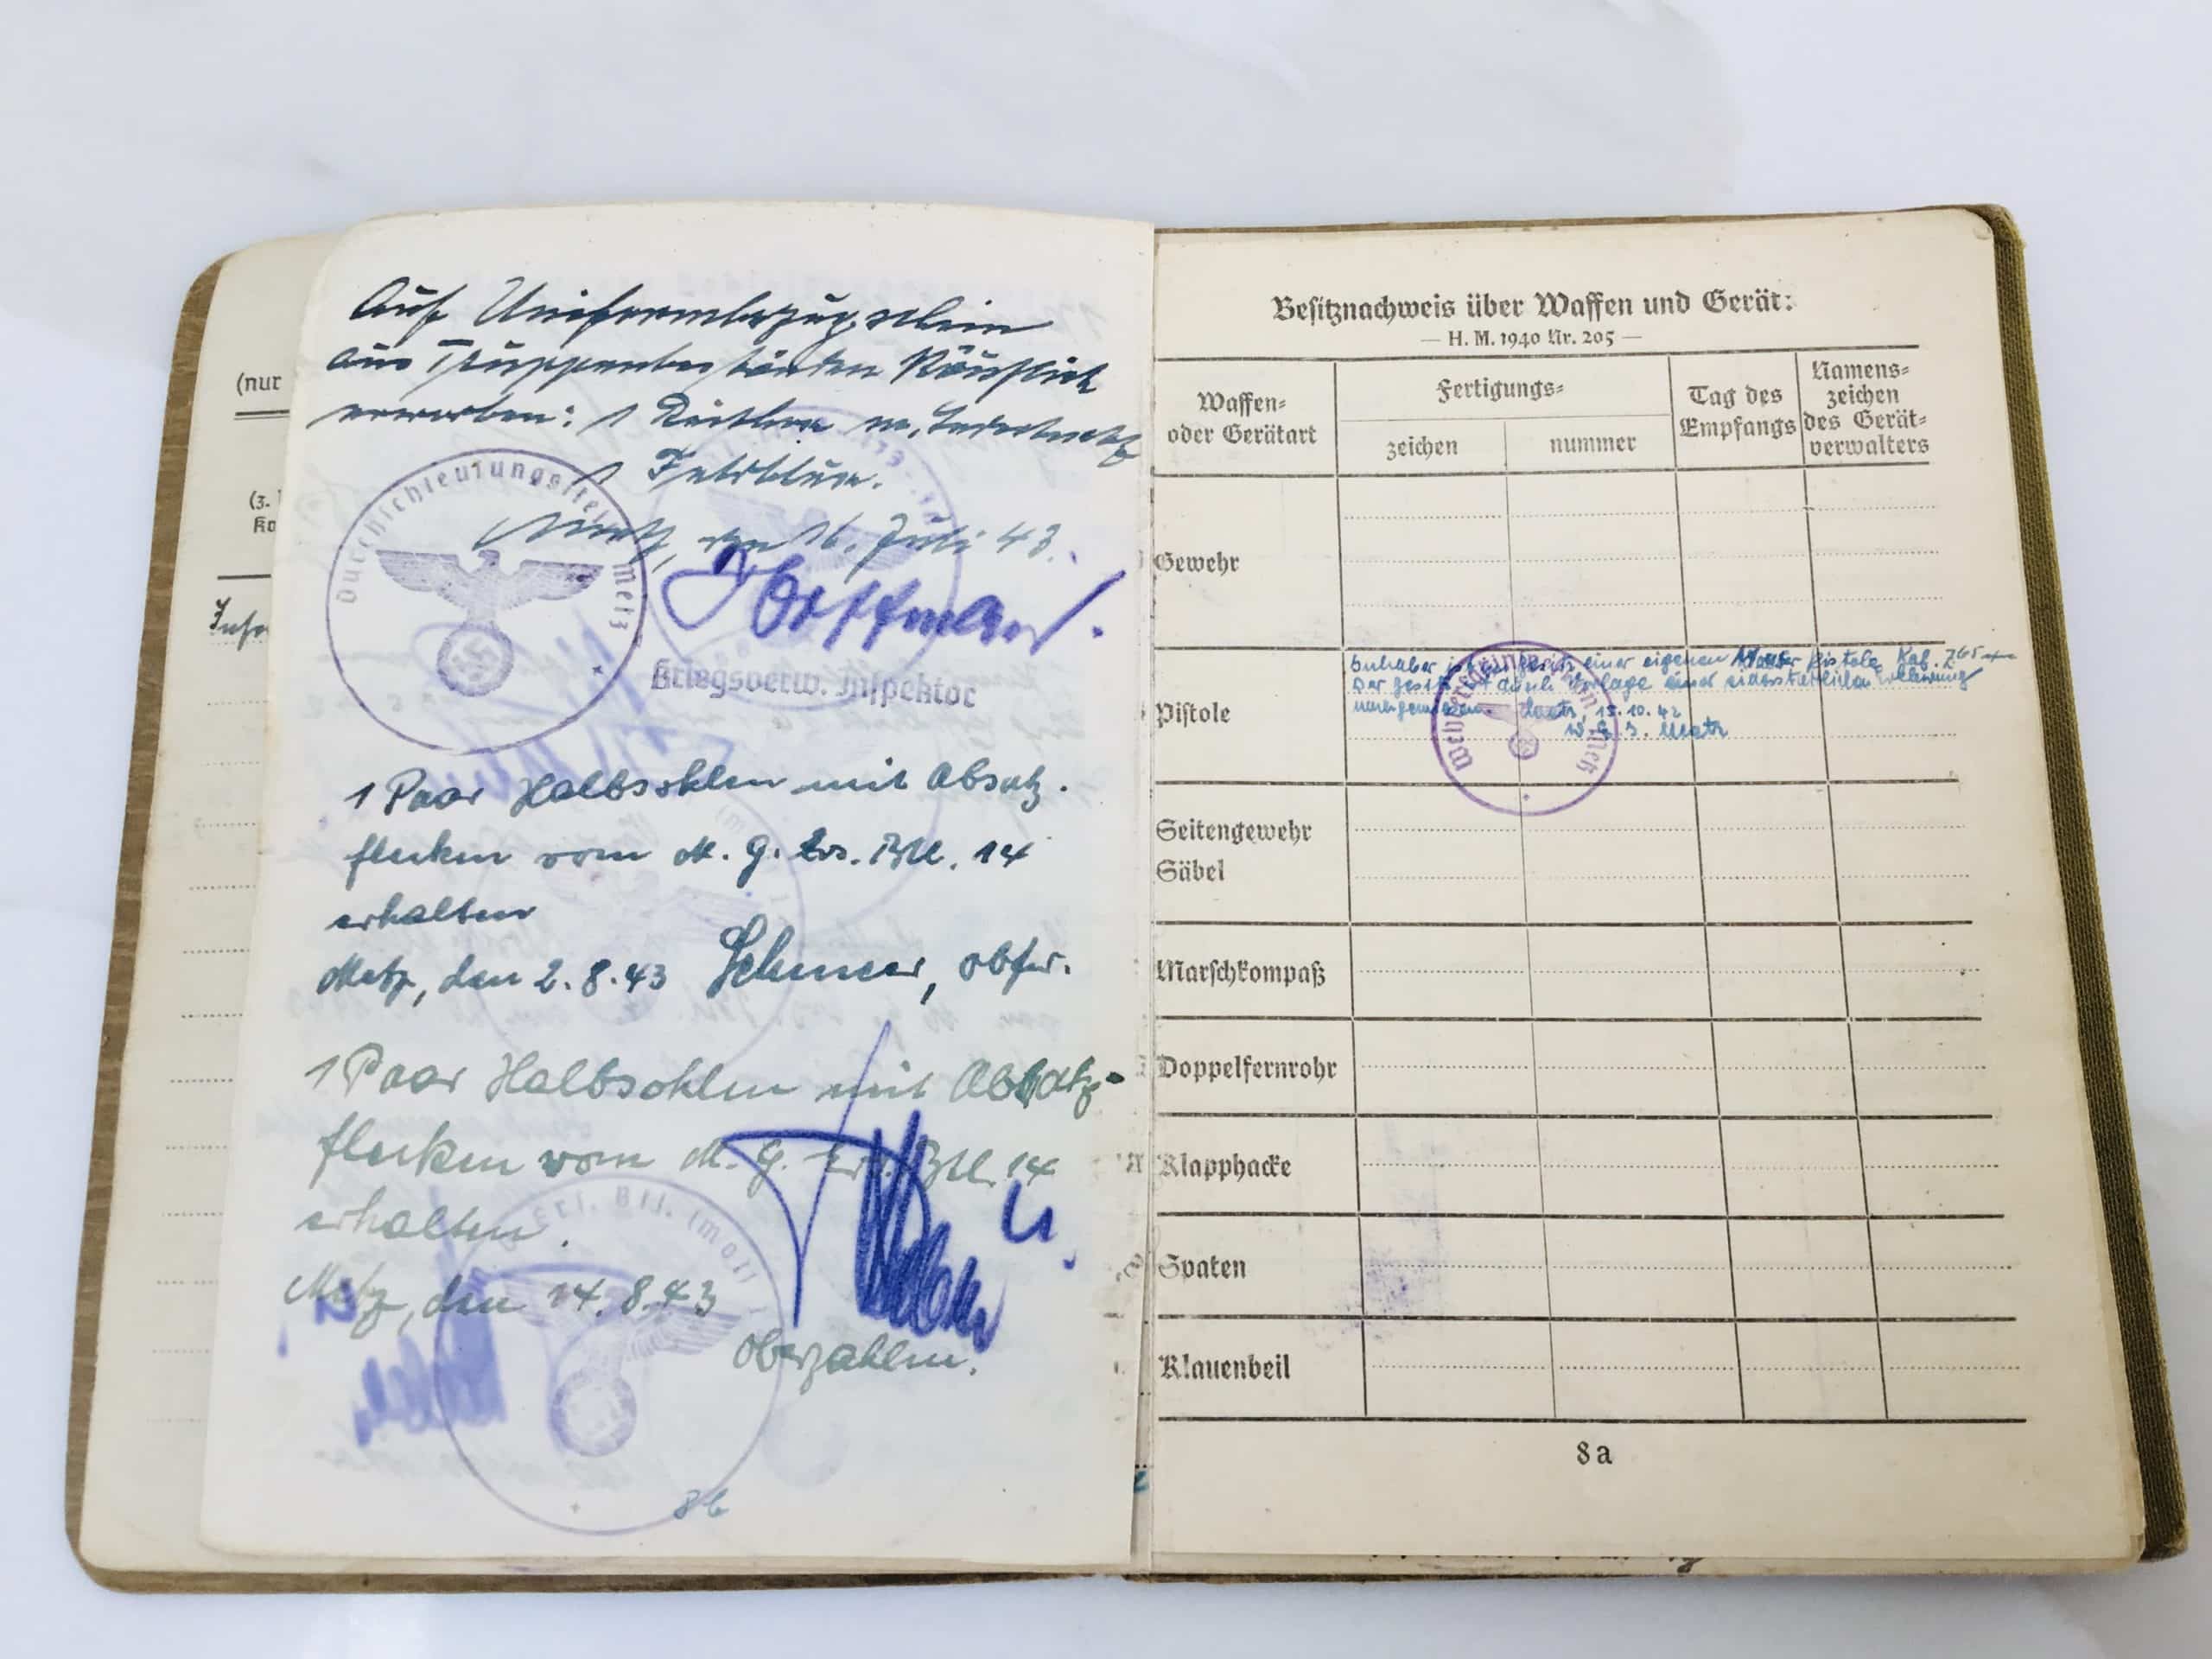 (nur
(z.
Ko
Auf Uniformbezugschein
aus Truppenbeständen käuflich
erworben: 1 Reithose m.
1 Feldbluse.
Metz, den 16. Juli 43.
Durchschleusungsstelle Metz
Kriegsverw. Inspektor
1 Paar Halbsohlen mit Absatz-
flecken vom M. G. Ers. Btl. 14
erhalten
Metz, den 2. 8. 43 Obfw.
1 Paar Halbsohlen mit Absatz-
flecken vom M. G. Ers. Btl. 14
erhalten.
Metz, den 14. 8. 43
Ers. Btl. (mot)
Oberzahlm.
8b
Besitznachweis über Waffen und Gerät:
— H. M. 1940 Nr. 205 —
Waffen-
oder Gerätart
Fertigungs-
zeichen
nummer
Tag des
Empfangs
Namens-
zeichen
des Gerät-
verwalters
Gewehr
Pistole
Inhaber ist im Besitz einer eigenen Mauser Pistole Kal. 7,65
Der Besitz ist durch Vorlage einer eidesstattlichen Erklärung
nachgewiesen. Metz, 15. 10. 42
Metz
Seitengewehr
Säbel
Marschkompaß
Doppelfernrohr
Klapphacke
Spaten
Klauenbeil
8a